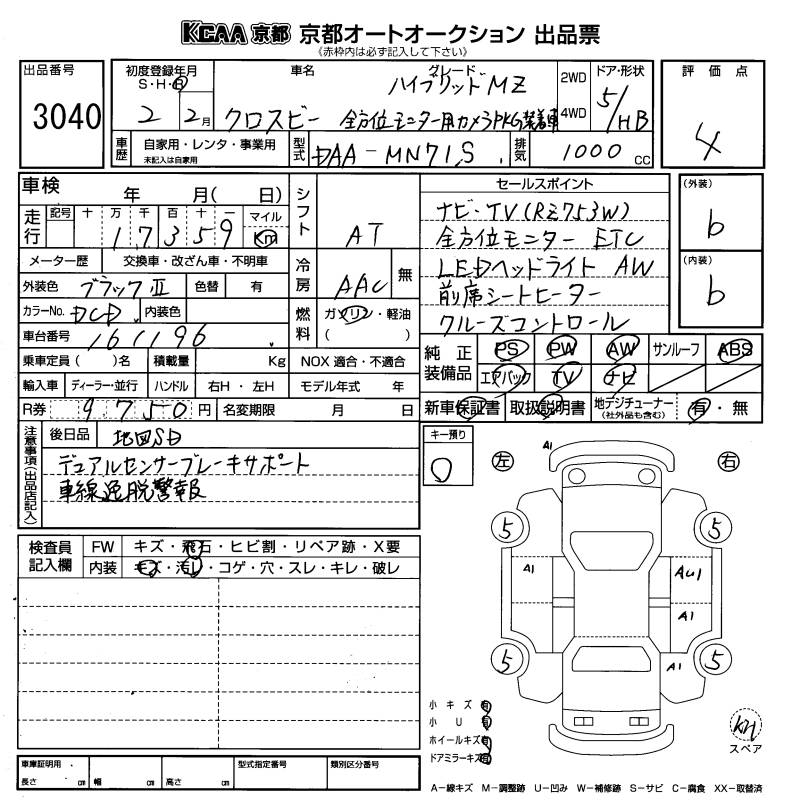 KCAA 京都 京都オートオークション 出品票
《赤枠内は必ず記入して下さい》
出品番号 3040
初度登録年月 S・H・R 2年 2月
車名 クロスビー
グレード ハイブリッドMZ
全方位モニター用カメラPKG装着車
2WD
4WD
ドア・形状 5/HB
評価点 4
車歴 自家用・レンタ・事業用
未記入は自家用
型式 DAA-MN71S
排気 1000 CC
車検 年 月( 日)
シフト AT
走行 記号 十 万 千 百 十 一 マイル Km
17359
メーター歴 交換車・改ざん車・不明車
冷房 AAC 無
外装色 ブラックⅡ 色替 有
カラーNo. DCD 内装色
燃料 ガソリン・軽油
( )
車台番号 161196
乗車定員( )名 積載量 Kg NOX 適合・不適合
輸入車 ディーラー・並行 ハンドル 右H・左H モデル年式 年
R券 9750円 名変期限 月 日
セールスポイント
ナビ・TV(RZ753W)
全方位モニター ETC
LEDヘッドライト AW
前席シートヒーター
クルーズコントロール
(外装) b
(内装) b
純正装備品 PS PW AW サンルーフ ABS
エアバック TV ナビ
新車保証書 取扱説明書 地デジチューナー (社外品も含む) 有・無
注意事項(出品店記入)
後日品 地図SD
デュアルセンサーブレーキサポート
車線逸脱警報
キー預り 0
検査員記入欄
FW キズ・飛石・ヒビ割・リペア跡・X要
内装 キズ・汚れ・コゲ・穴・スレ・キレ・破レ
左 右
A1
5 5
A1 AU1
A1
5 A1 5
小キズ 有
小U 有
ホイールキズ 有
ドアミラーキズ 有
スペア
車庫証明用 長さ cm 幅 cm 高さ cm
型式指定番号 類別区分番号
A-線キズ M-調整跡 U-凹み W-補修跡 S-サビ C-腐食 XX-取替済